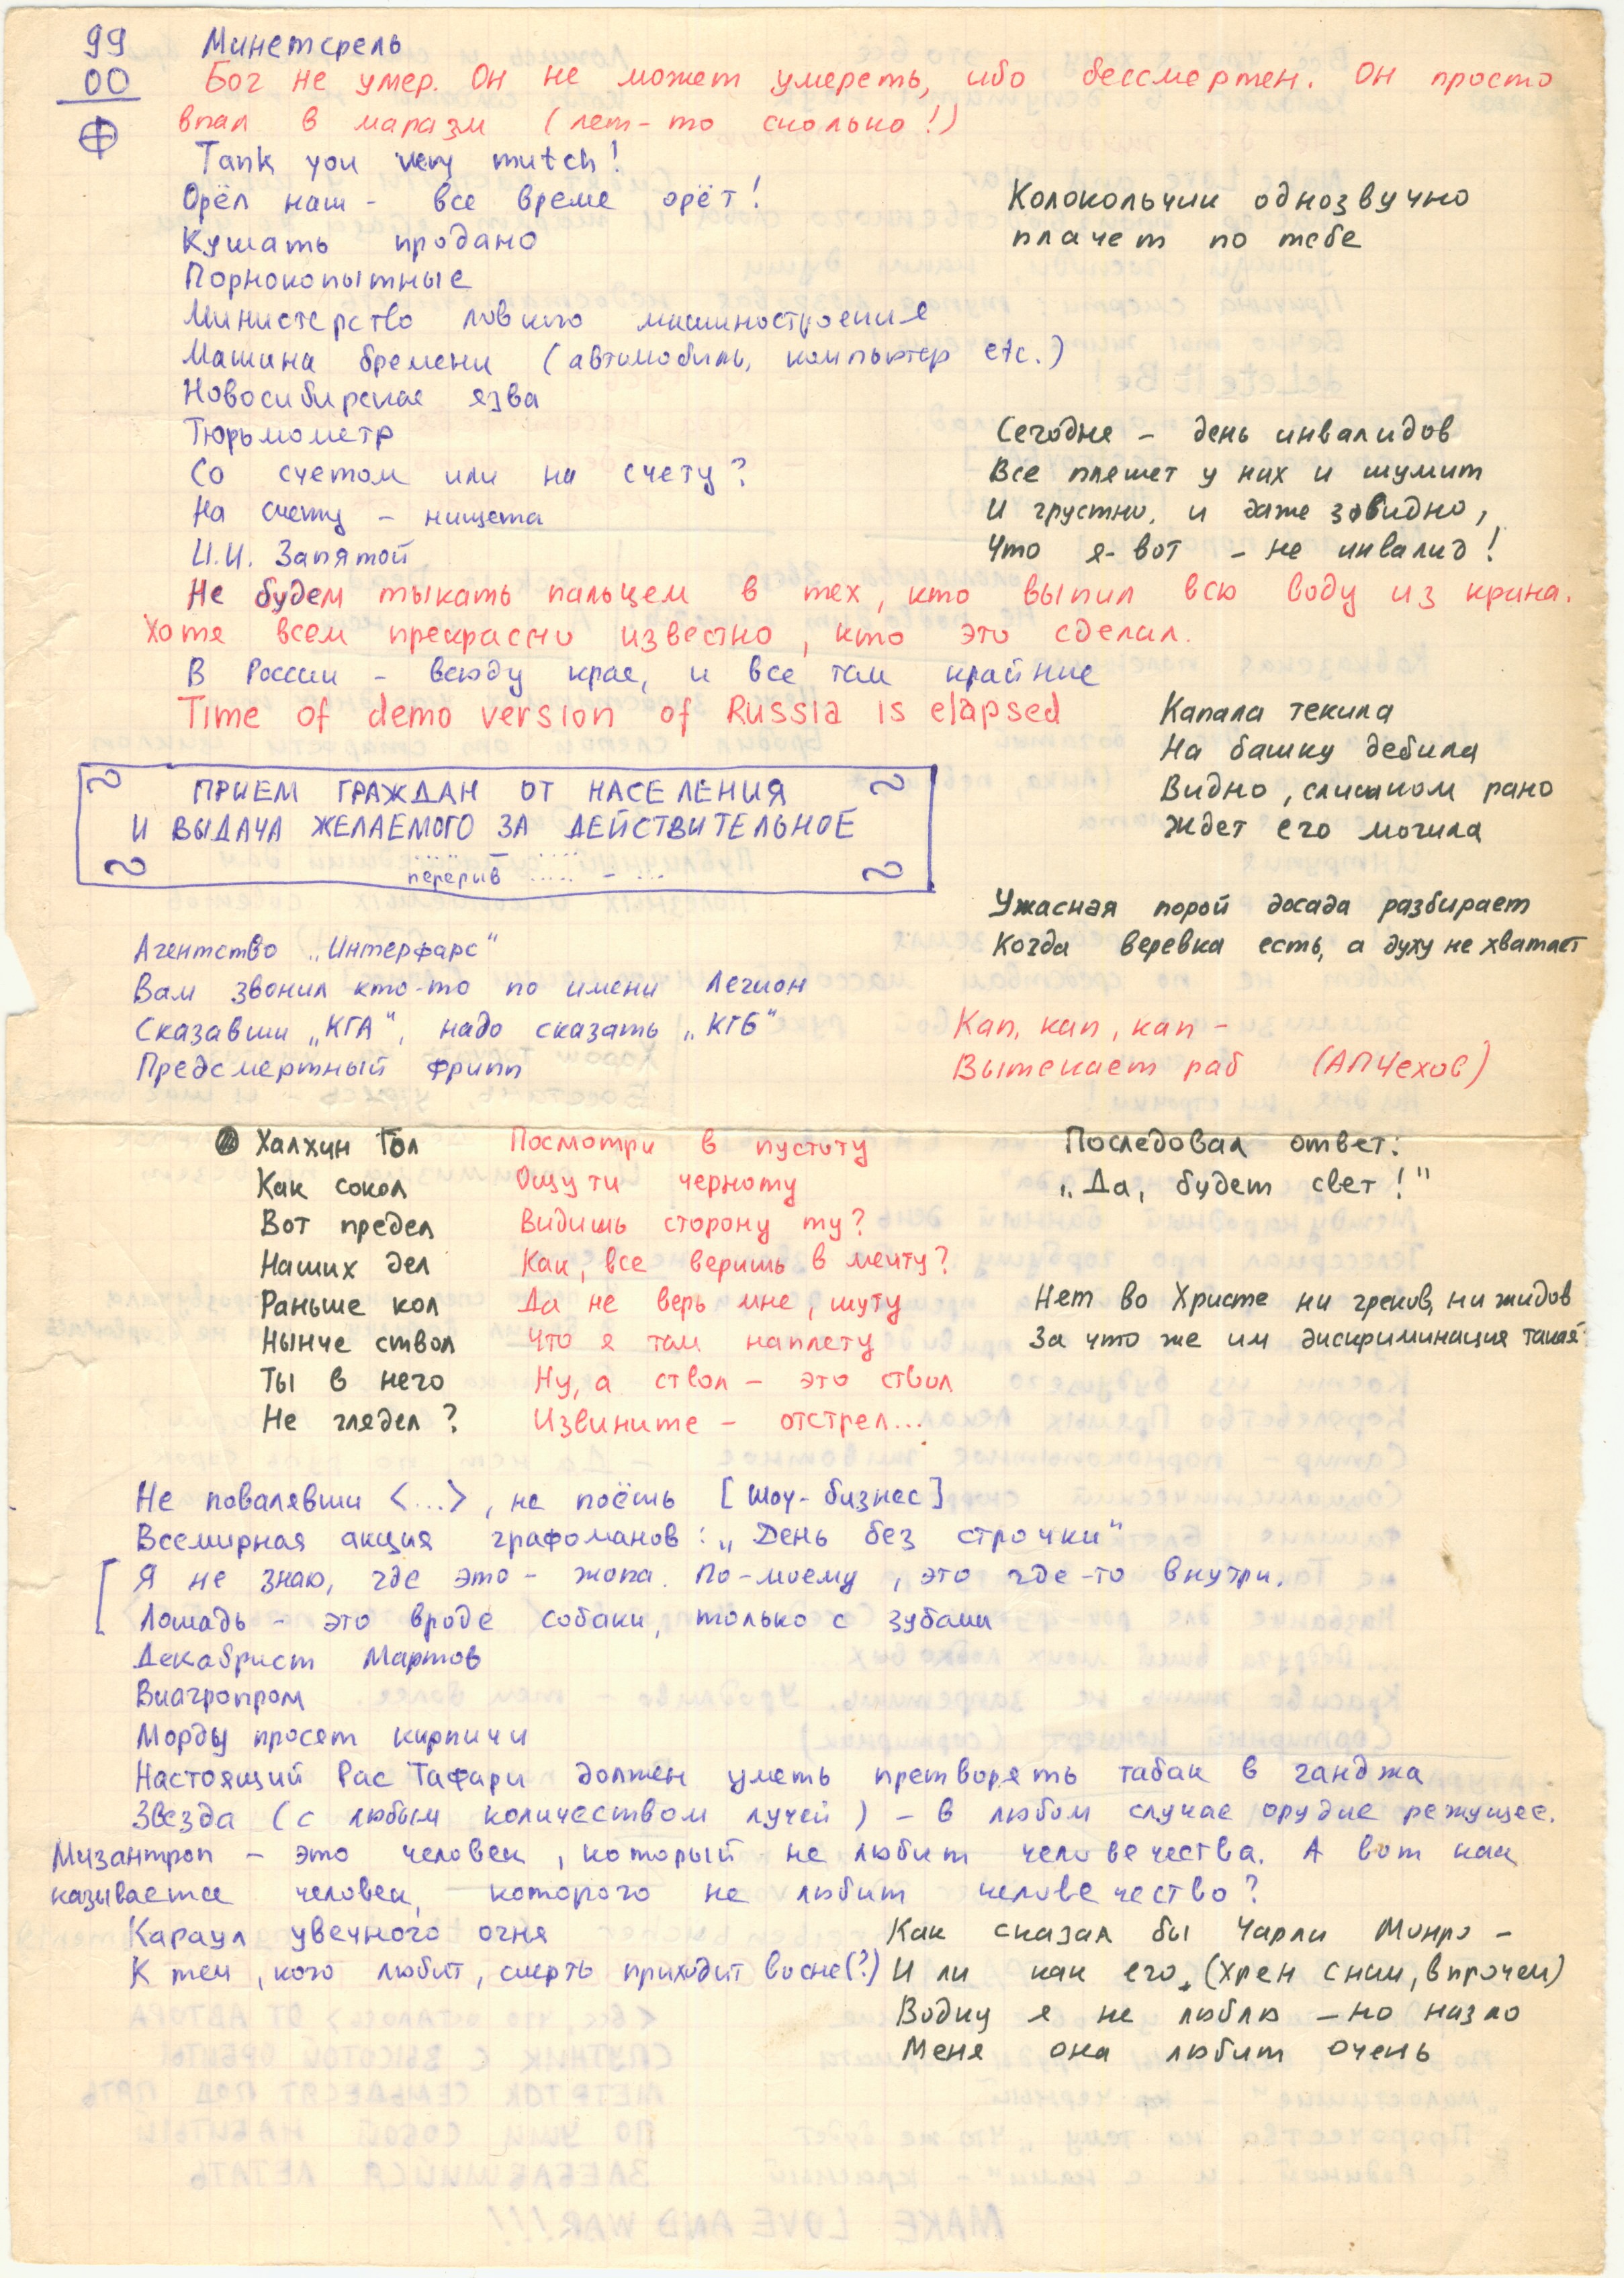 99
00
Минетсрель
Бог не умер. Он не может умереть, ибо бессмертен. Он просто
впал в маразм (лет-то сколько!)
Tank you very mutch!
Орёл наш - все время орёт!
Кушать продано
Порнокопытные
Министерство ловкого машиностроения
Машина бремени (автомобиль, компьютер etc.)
Новосибирская язва
Тюрьмометр
Со счетом или на счету?
На счету - нищета
И.И. Запятой
Колокольчик однозвучно
плачет по тебе
Сегодня - день инвалидов
Все пляшет у них и шумит
И грустно, и даже завидно,
Что я-вот - не инвалид!
Не будем тыкать пальцем в тех, кто выпил всю воду из крана.
Хотя всем прекрасно известно, кто это сделал.
В России - всюду края, и все там крайние
Time of demo version of Russia is elapsed
ПРИЕМ ГРАЖДАН ОТ НАСЕЛЕНИЯ
И ВЫДАЧА ЖЕЛАЕМОГО ЗА ДЕЙСТВИТЕЛЬНОЕ
перерыв ..... - ...
Капала текила
На башку дебила
Видно, слишком рано
Ждет его могила
Ужасная порой досада разбирает
Когда веревка есть, а духу не хватает
Агентство „Интерфарс“
Вам звонил кто-то по имени Легион
Сказавши „КГА“, надо сказать „КГБ“
Предсмертный фрипп
Кап, кап, кап -
Вытекает раб (АПЧехов)
Халхин Гол
Как сокол
Вот предел
Наших дел
Раньше кол
Нынче ствол
Ты в него
Не глядел?
Посмотри в пустоту
Ощути черноту
Видишь сторону ту?
Как, все веришь в мечту?
Да не верь мне, шуту
Что я там наплету
Ну, а ствол - это ствол
Извините - отстрел...
Последовал ответ:
„Да, будет свет!“
Нет во Христе ни греков, ни жидов
За что же им дискриминация такая
Не повалявши <...>, не поёшь [шоу-бизнес]
Всемирная акция графоманов: „День без строчки“
Я не знаю, где это - жопа. По-моему, это где-то внутри.
Лошадь - это вроде собаки, только с зубами
Декабрист Мартов
Виагропром
Морды просят кирпичи
Настоящий Рас Тафари должен уметь претворять табак в ганджа
Звезда (с любым количеством лучей) - в любом случае орудие режущее.
Мизантроп - это человек, который не любит человечества. А вот как
называется человек, которого не любит человечество?
Караул увечного огня
К тем, кого любит, смерть приходит во сне(?)
Как сказал бы Чарли Монро -
Или как его, (хрен с ним, впрочем)
Водку я не люблю - но назло
Меня она любит очень